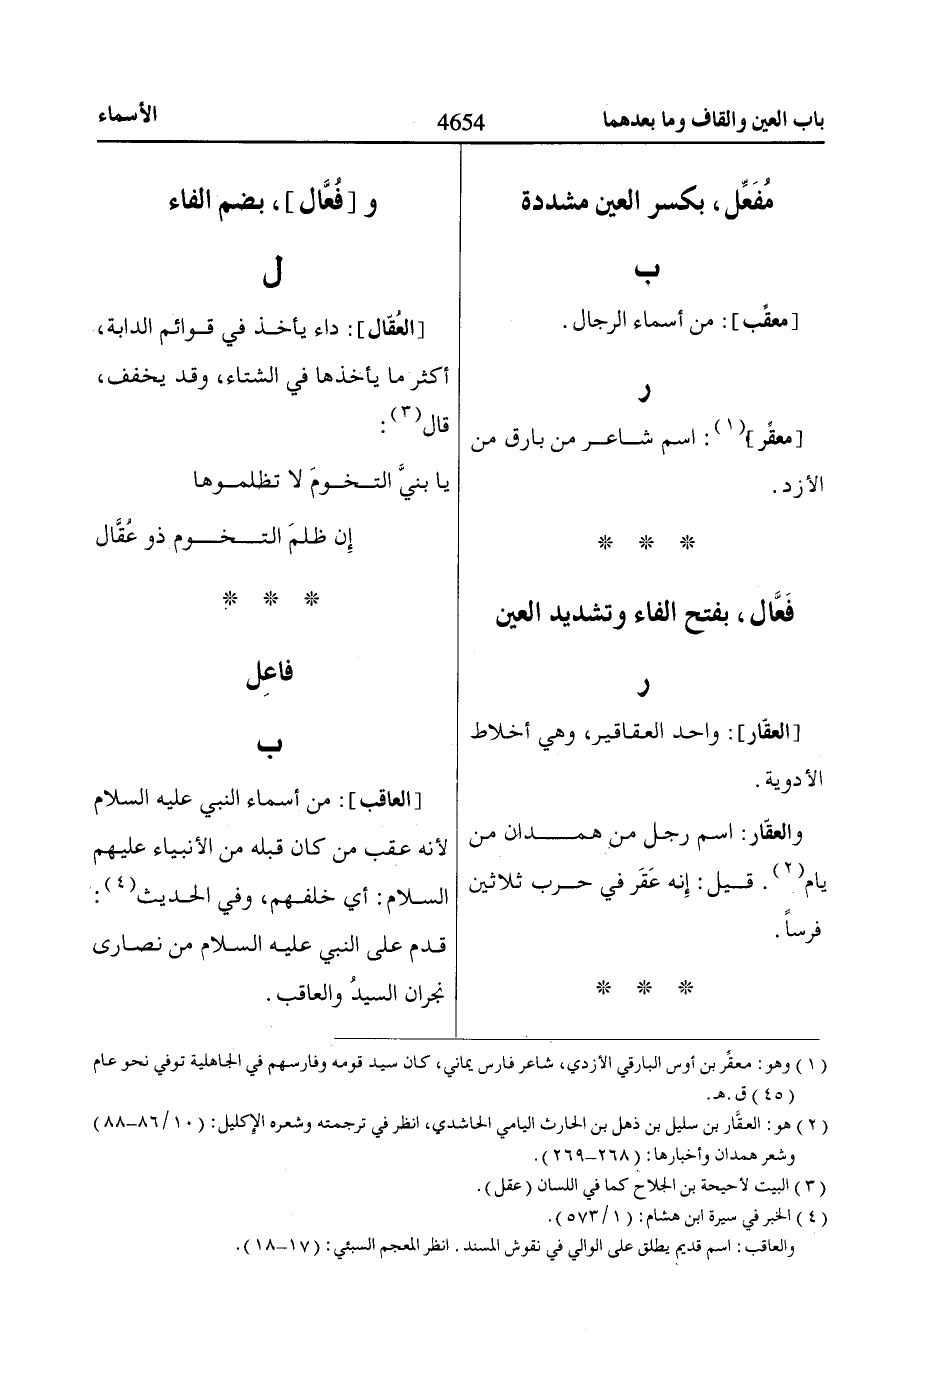 باب العين والقاف وما بعدهما 4654 الأسماء
مُفَعِّل، بكسر العين مشددة
ب
[معقِّب]: من أسماء الرجال.
ر
[معقِّر](١): اسم شاعر من بارق من
الأزد.
* * *
فَعَّال، بفتح الفاء وتشديد العين
ر
[العقّار]: واحد العقاقير، وهي أخلاط
الأدوية.
والعقّار: اسم رجل من همدان من
يام(٢). قيل: إنه عَقَر في حرب ثلاثين
فرساً.
* * *
و [فُعَّال]، بضم الفاء
ل
[العُقّال]: داء يأخذ في قوائم الدابة،
أكثر ما يأخذها في الشتاء، وقد يخفف،
قال(٣):
يا بنيَّ التخومَ لا تظلموها
إن ظلمَ التخوم ذو عُقَّال
* * *
فاعِل
ب
[العاقب]: من أسماء النبي عليه السلام
لأنه عقب من كان قبله من الأنبياء عليهم
السلام: أي خلفهم، وفي الحديث(٤):
قدم على النبي عليه السلام من نصارى
نجران السيدُ والعاقب.
(١) وهو: معقِّر بن أوس البارقي الأزدي، شاعر فارس يماني، كان سيد قومه وفارسهم في الجاهلية توفي نحو عام
(٤٥) ق.هـ.
(٢) هو: العقَّار بن سليل بن ذهل بن الحارث اليامي الحاشدي، انظر في ترجمته وشعره الإكليل: (١٠/٨٦-٨٨)
وشعر همدان وأخبارها: (٢٦٨-٢٦٩).
(٣) البيت لأحيحة بن الجلاح كما في اللسان (عقل).
(٤) الخبر في سيرة ابن هشام: (١/٥٧٣).
والعاقب: اسم قديم يطلق على الوالي في نقوش المسند. انظر المعجم السبئي: (١٧-١٨).